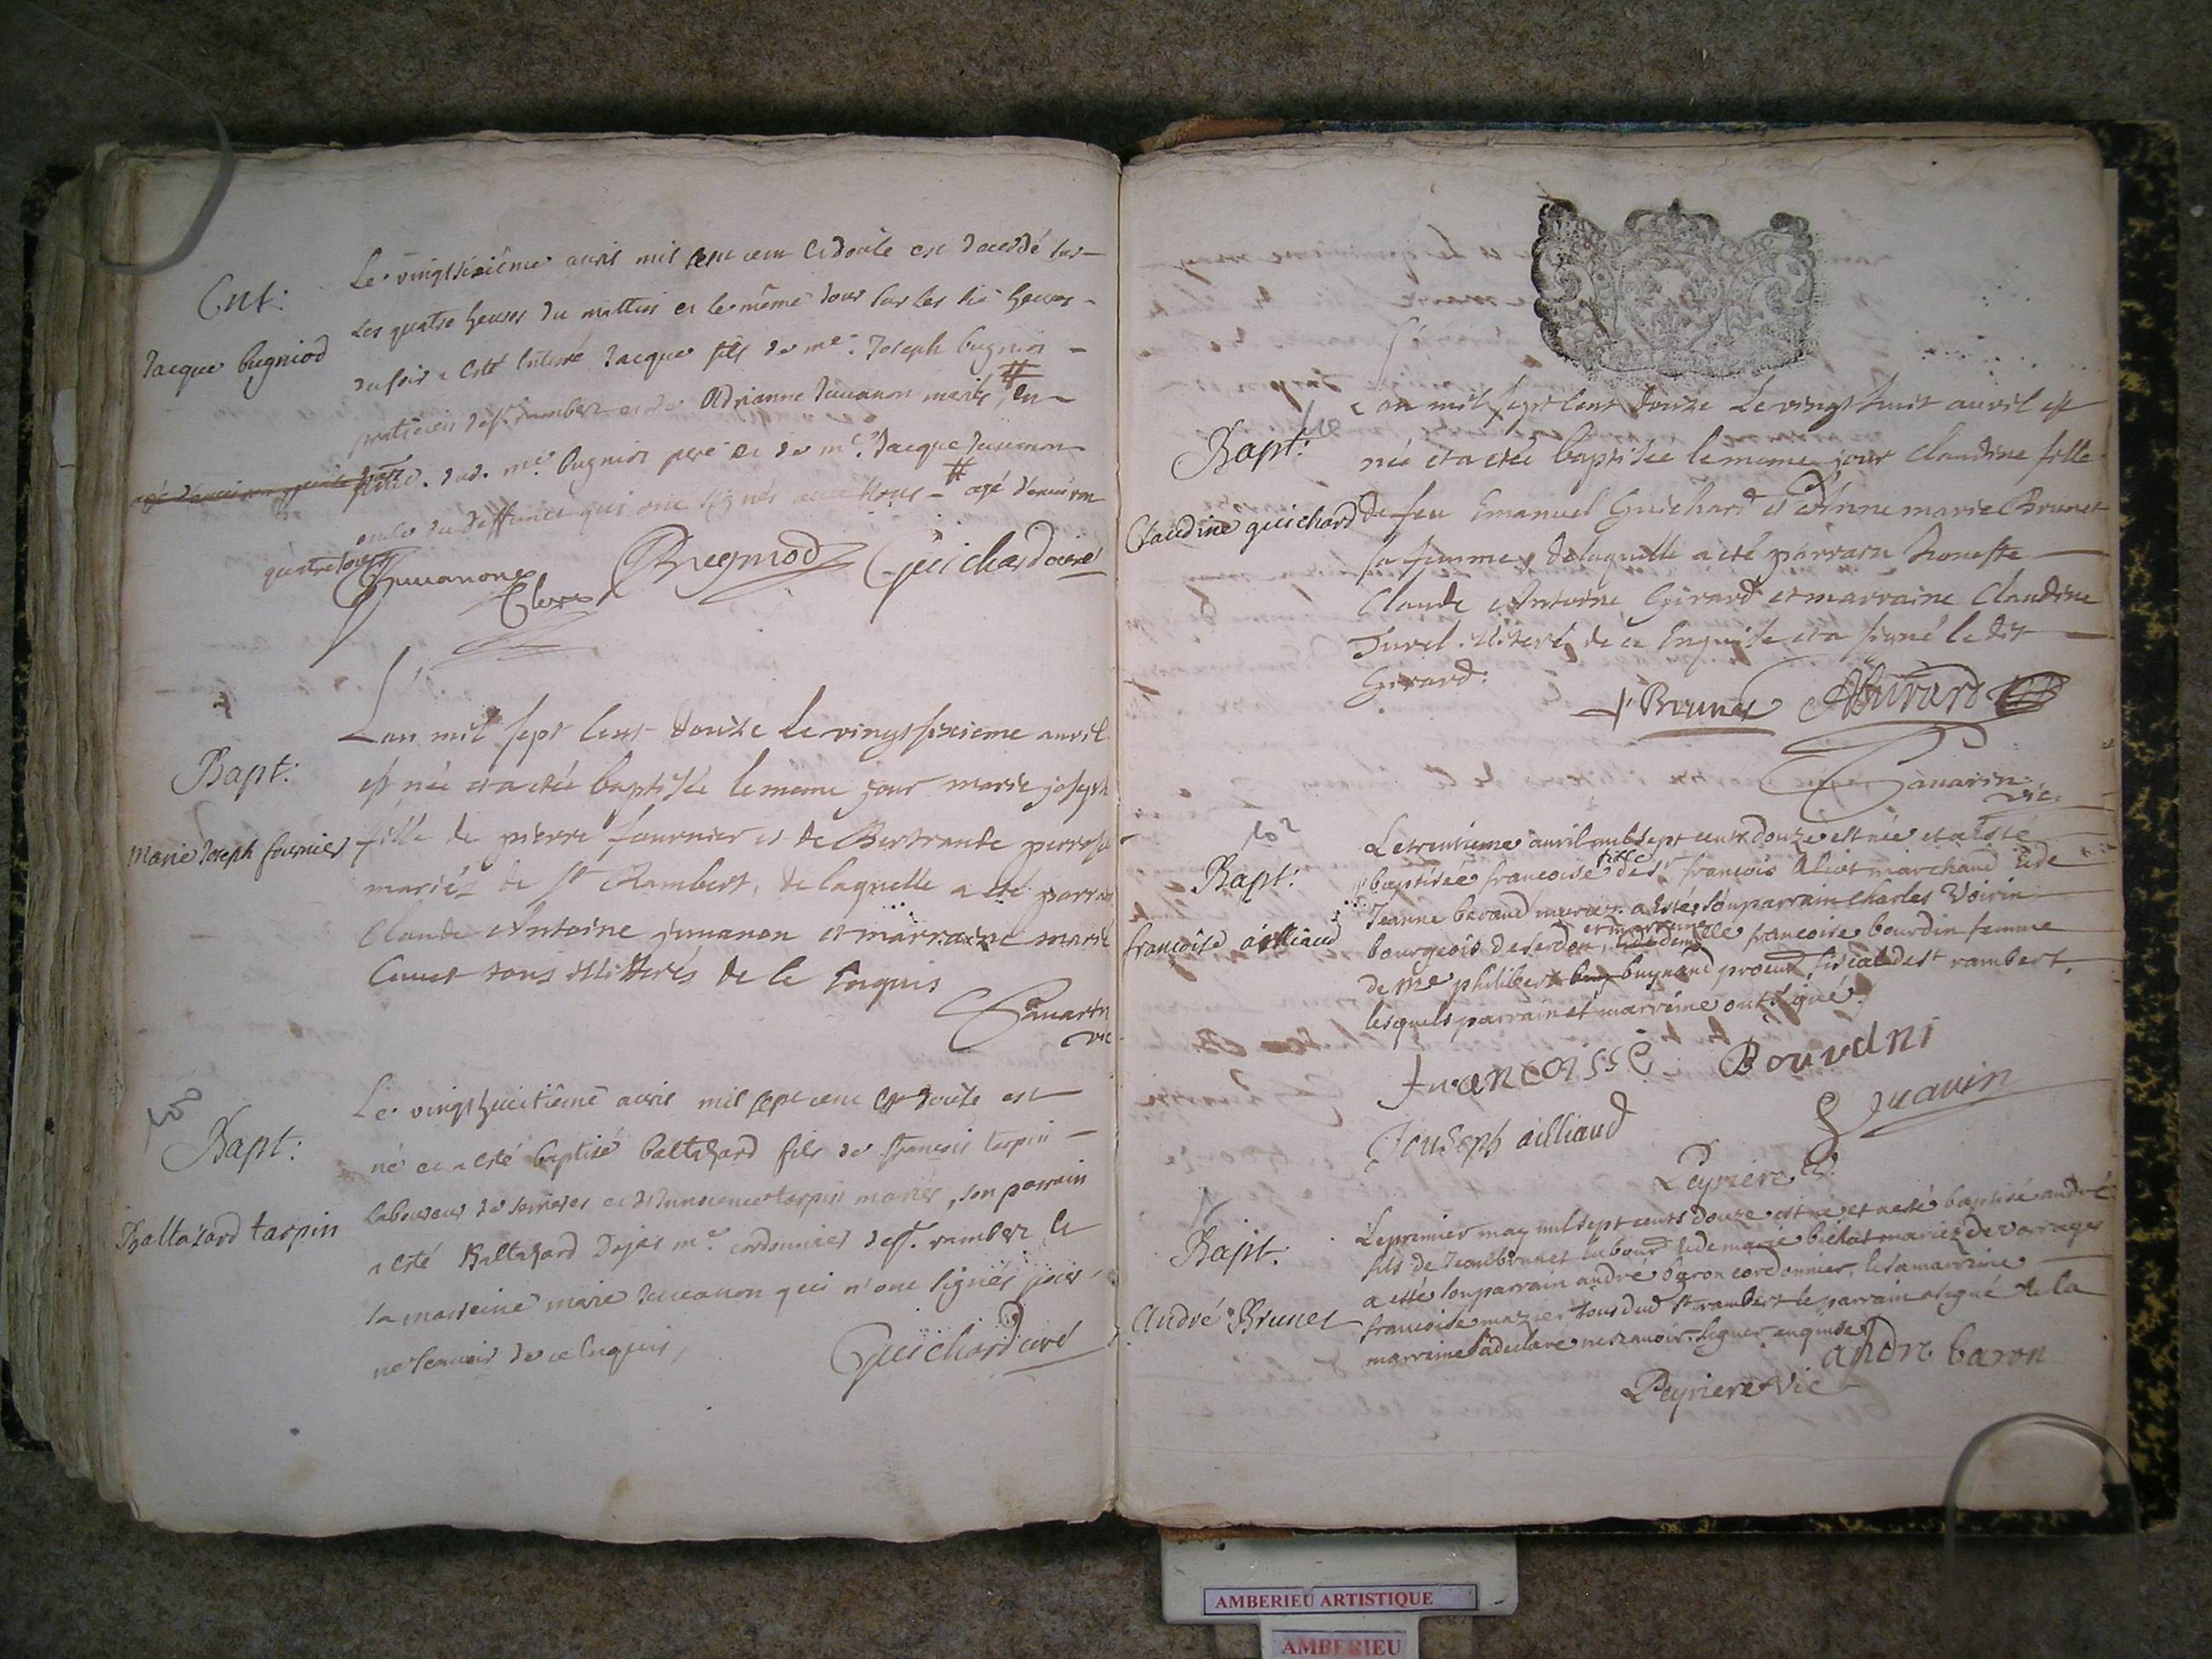 Ent:
Jacque bugniod
Le vingtsixiême avril mil sept cent et douze est decedé sur
les quatre heures du mattin et le même jour sur les dix heures
du soir a esté enterré Jacque fils de me. Joseph bugniod
praticien de st. rambert et de Adrianne Juuanon mariés, # en
pnce. dud. me. bugniod pere et de me. Jacque Juuanon
oncle du deffunct qui ont signés avec nous - # agé d'environ
quatre jours
Juuanon
Clerc
Bugniod
Guichard curé
Bapt:
Marie Joseph fournier
L'an mil sept cent douze le vingt sixieme avril
est née et a etée baptisée le meme jour marie joseph
fille de pierre fournier et de Bertrande
mariéz de st Rambert, de laquelle a eté parrain
Claude Antoine juuanon et marraine marie
tous illitterés de ce enquis
Sauarin
vic
Bapt:
Baltazard tarpin
Le vingthuitiême avril mil sept cent et douze est
né et a esté baptisé baltazard fils de françois tarpin
laboureur de serrieres et d'Innocence tarpin mariés, son parrain
a esté Baltazard Dejas me. cordonnier de st. rambert et
sa marreine marie Juuanon qui n'ont signés pour
ne scauoir de ce enquis,
Guichard curé
Bapt:
Claudine guichard
L'an mil sept cent douze le vingt huit auril est
née et a etée baptisée le meme jour Claudine fille
de feu Emanuel Guichard et d'Anne marie Brunet
sa femme, de laquelle a eté parrain honeste
Claude Antoine Girard et marraine Claudine
Juvel illiterée de ce enquise et a signé le dit
Girard.
Brunet
AGirard
Sauarin
vic
102
Bapt:
francoise ailliaud
Le trentieme auril mil sept cents douze est née et a esté
baptisée francoise fille de sr françois Aliot marchand et de
Jeanne beraud mariez. a esté son parrain Charles Voirin
bourgeois de serdon, et marreine demlle francoise bourdin femme
de me philibert bugnand procur fiscal de st rambert,
lesquels parrain et marreine ont signé.
francoisse Bourdni
Jouseph ailliaud
Peyriere v.
Bapt:
André Brunet
Le premier may mil sept cents douze est né et a esté baptisé andré
fils de Jean brunet labour et de marie bichat mariez de varrages
a esté son parrain andré baron cordonnier, et sa marreine
francoise mazier tous dud st rambert le parrain a signé et la
marreine a declaré ne scauoir signer enquise
andre baron
Peyriere vic
AMBERIEU ARTISTIQUE
AMBERIEU